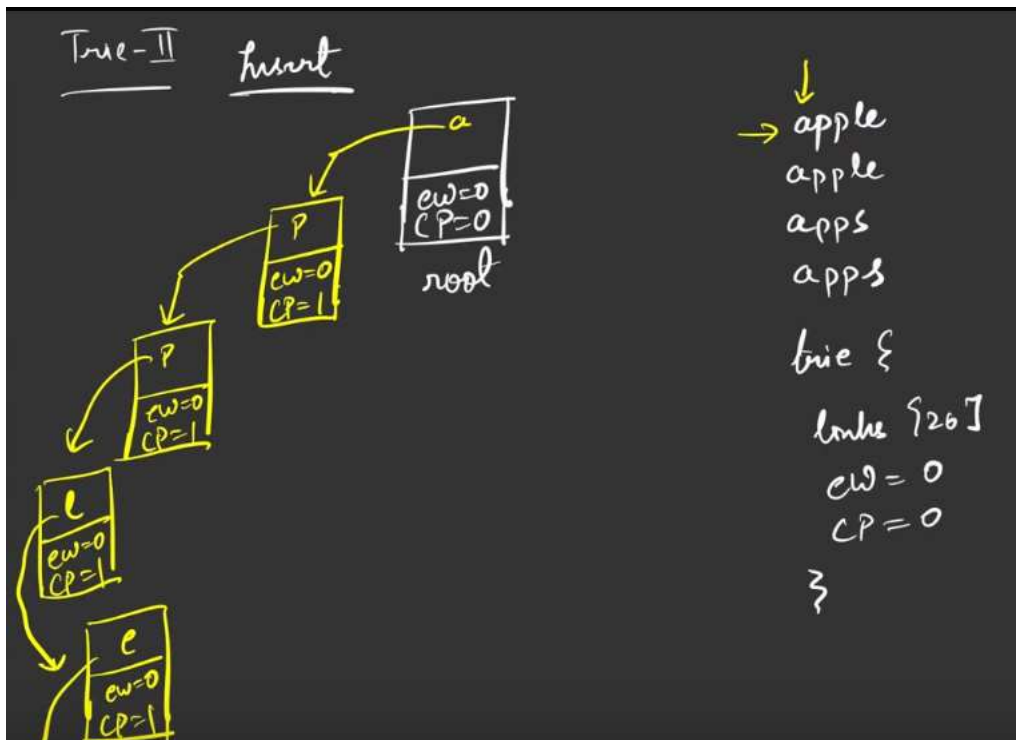 Trie-II Insert
a
ew=0
CP=0
root
P
ew=0
CP=1
P
ew=0
CP=1
l
ew=0
CP=1
e
ew=0
CP=1
apple
apple
apps
apps
trie {
links [26]
ew = 0
CP = 0
}